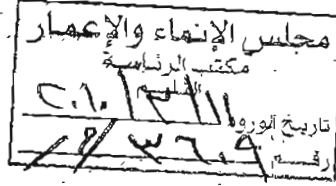 مجلس الإنماء والإعمار
مكتب الرئاسة
تاريخ الورود ٢٠١٠/٣/١١
رقم ٣٦٠٩/